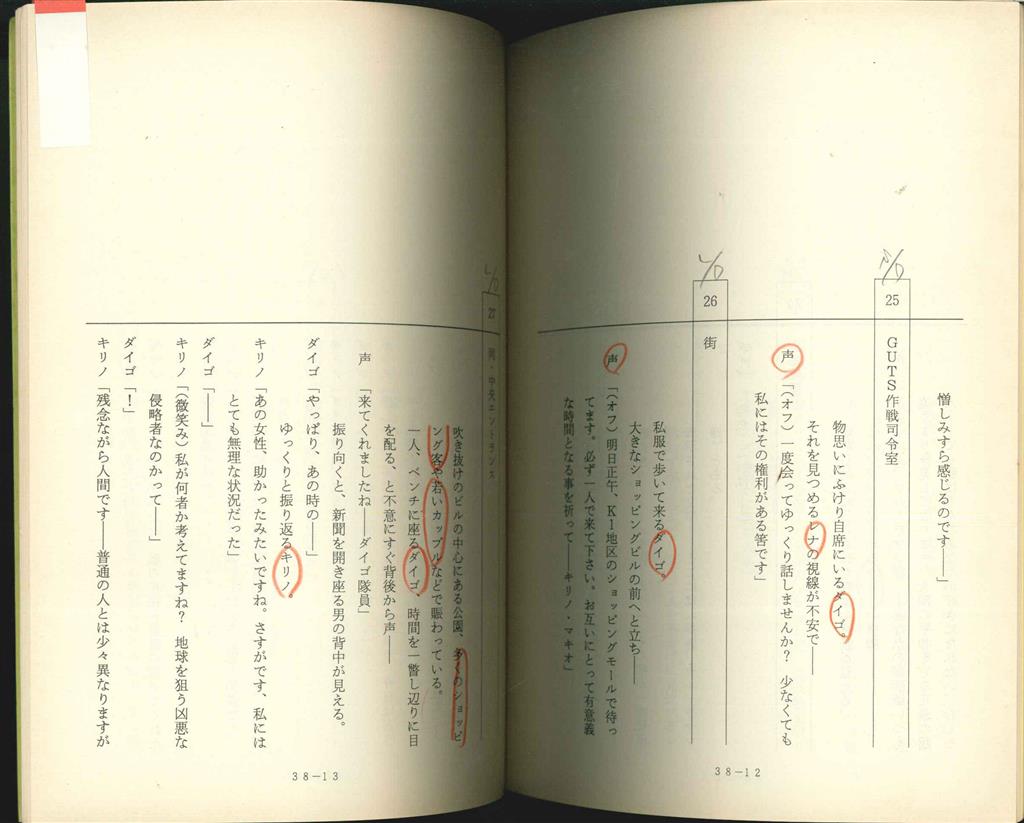 憎しみすら感じるのです――」
25 GUTS作戦司令室
物思いにふけり自席にいるダイゴ。
それを見つめるレナの視線が不安で――
声 「(オフ)一度会ってゆっくり話しませんか? 少なくても
私にはその権利がある筈です」
26 街
私服で歩いて来るダイゴ。
大きなショッピングビルの前へと立ち――
声 「(オフ)明日正午、K1地区のショッピングモールで待っ
てます。必ず一人で来て下さい。お互いにとって有意義
な時間となる事を祈って――キリノ・マキオ」
38-12
27 同・中央エントランス
吹き抜けのビルの中心にある公園、多くのショッピ
ング客や若いカップルなどで賑わっている。
一人、ベンチに座るダイゴ、時間を一瞥し辺りに目
を配る、と不意にすぐ背後から声――
声 「来てくれましたね――ダイゴ隊員」
振り向くと、新聞を開き座る男の背中が見える。
ダイゴ「やっぱり、あの時の――」
ゆっくりと振り返るキリノ。
キリノ「あの女性、助かったみたいですね。さすがです、私には
とても無理な状況だった」
ダイゴ「――」
キリノ「(微笑み)私が何者か考えてますね? 地球を狙う凶悪な
侵略者なのかって――」
ダイゴ「!」
キリノ「残念ながら人間です――普通の人とは少々異なりますが
38-13